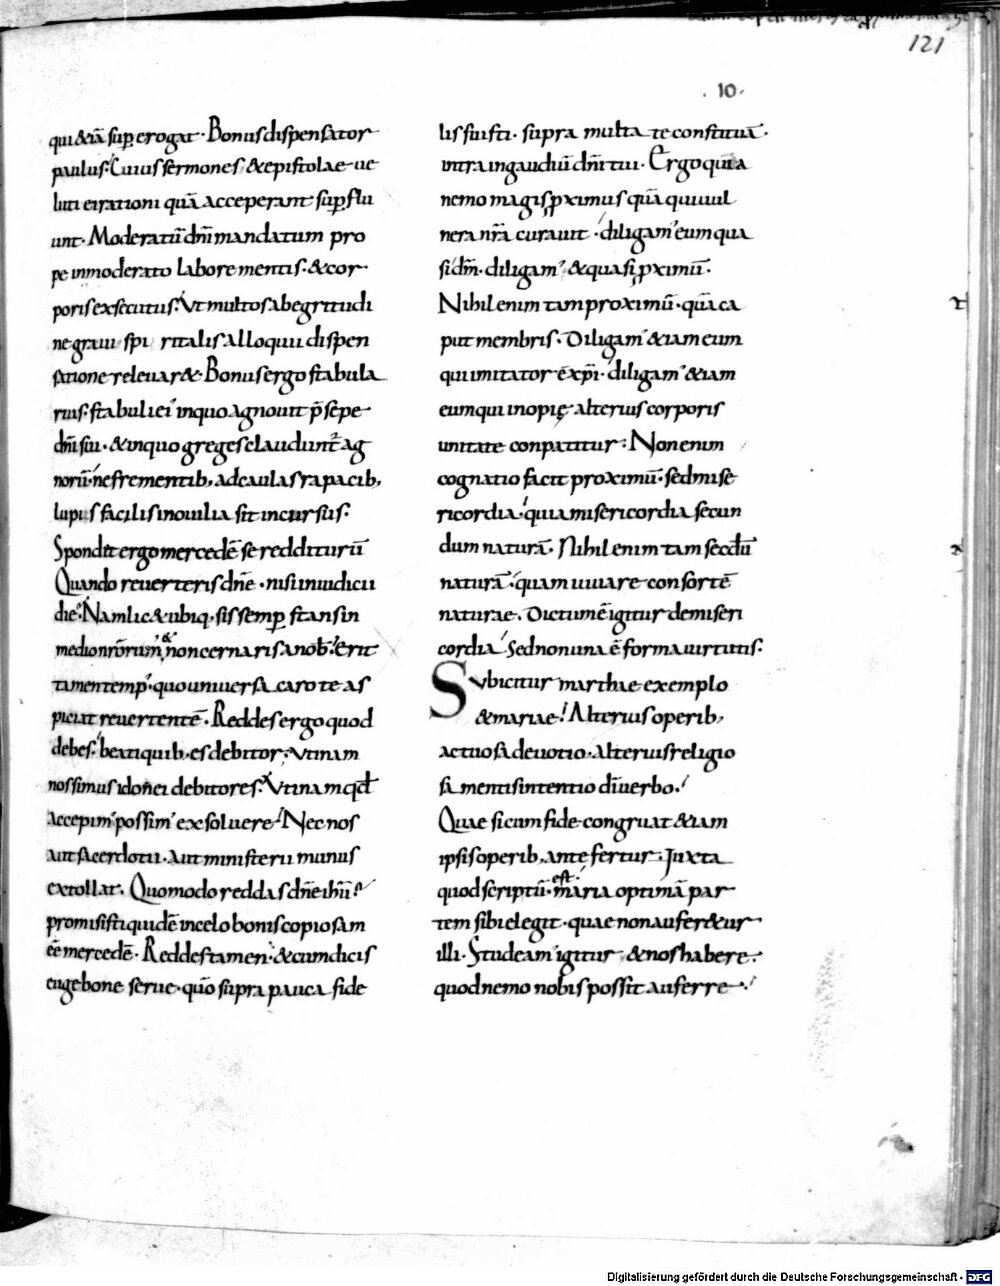 121
. 10.
qui &iã sup̱erogat · Bonus dispensator
paulus · Cuius sermones & epistolae ue
luti ei rationi quã acceperant sup̱flu
unt · Moderatũ dñi mandatum pro
pe inmoderato labore mentis · & cor
poris exsecutus · Ut multos abegritudi
ne graui spiritalis alloquii dispen
satione releuar& · Bonus ergo stabula
rius · stabuli ei' in quo agnouit p̄sepe
dñi sui · & in quo greges claudunt̃ ag
norũ · ne frementib, ad caulas rapacib,
lupis facilis in ouilia sit incursus ·
Spondet ergo mercedẽ se redditurũ
Quando reuerteris dñe · nisi iniudicii
die · Nam lic& ubiq, sis semp̱ stans in
medio nr̃orum & non cernaris a nob̃ · Erit
tamen temp' · quo uniuersa caro te as
piciat reuertentẽ · Reddes ergo quod
debes · beati quib, es debitor · Utinam
nos simus idonei debitores · Utinam qđ
accepim' possim' exsoluere · Nec nos
aut sacerdotii · aut ministerii munus
extollat · Quomodo reddas dñe ih̃u ·
promisisti quidẽ in celo bonis copiosam
eẽ mercedẽ · Reddes tamen · & cum dicis
euge bone serue · quõ supra pauca fide
lis fuisti · supra multa te constituã ·
intra in gaudiũ dñi tui · Ergo quia
nemo magis p̱ximus quã qui uul
nera nr̃a curauit · diligam' eum qua
si dñm · diligam' & quasi p̱ximũ ·
Nihil enim tam proximũ · quã ca
put membris · Diligam' &iam eum
qui imitator ẽ xp̃i · diligam' &iam
eum qui inopię alterius corporis
unitate conpatitur · Non enim
cognatio facit proximũ · sed mise
ricordia · quia misericordia secun
dum naturã · Nihil enim tam secđũ
naturã · quam iuuare consortẽ
naturae · Dictum ẽ igitur de miseri
cordia Sed non una ẽ forma uirtutis ·
Subicitur marthae exemplo
& mariae · Alterius operib,
actuosa deuotio · alterius religio
sa mentis intentio dĩ uerbo ·
Quae si cum fide congruat &iam
ipsis operib, antefertur · Juxta
quod scriptũ est · maria optimã par
tem sibi elegit · quae non aufer&ur
illi · Studeam' igitur & nos habere ·
quod nemo nobis possit auferre ·
Digitalisierung gefördert durch die Deutsche Forschungsgemeinschaft - DFG